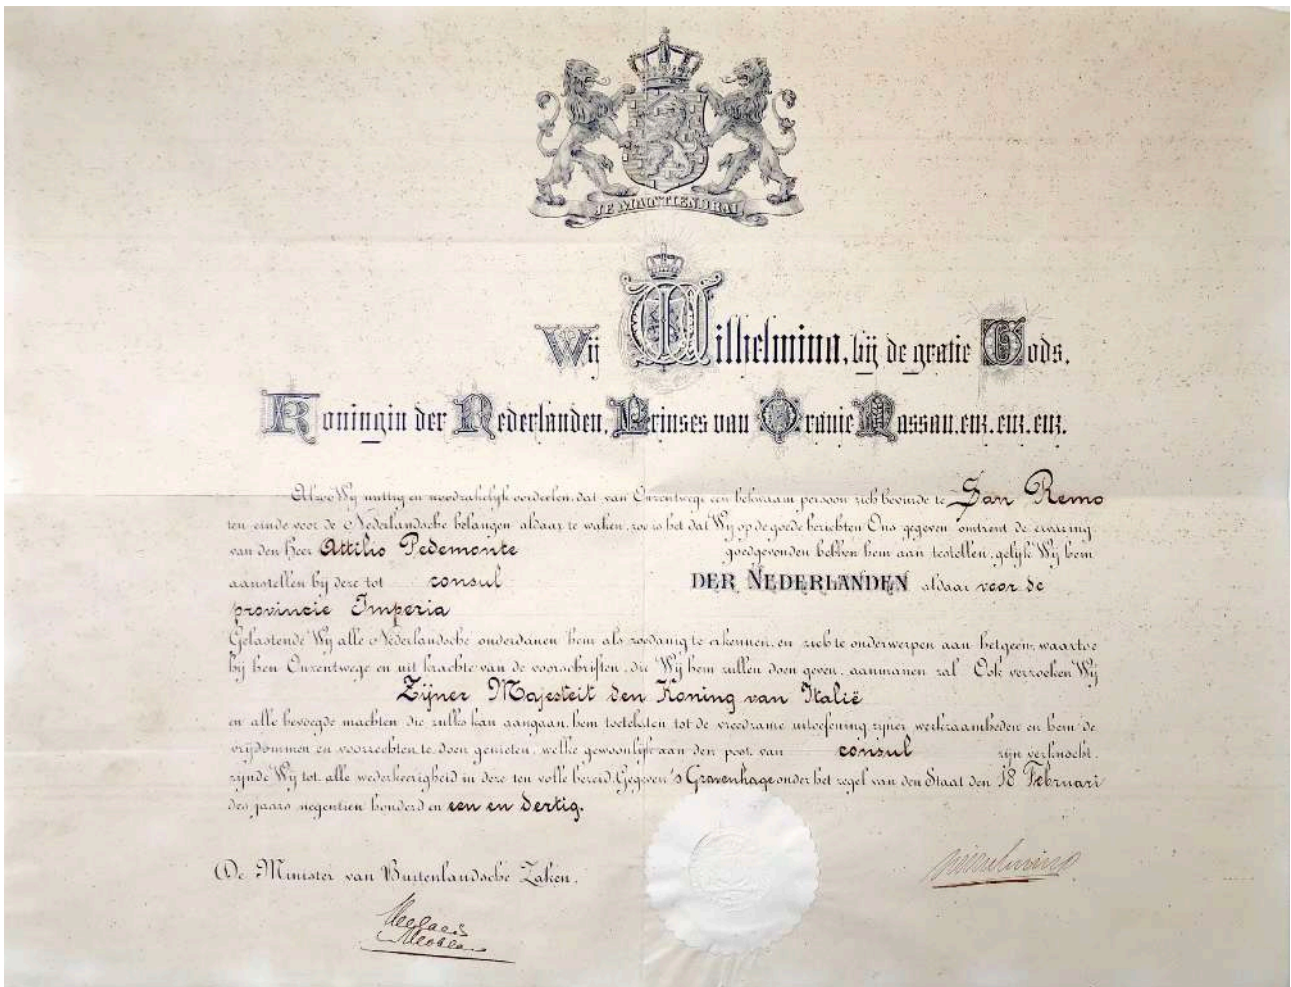 JE MAINTIENDRAI
Wij Wilhelmina, bij de gratie Gods,
Koningin der Nederlanden, Prinses van Oranje Nassau, enz. enz. enz.
Alzoo Wij nuttig en noodzakelijk oordeelen, dat van Onzentwege een bekwaam persoon zich bevinde te San Remo
ten einde voor de Nederlandsche belangen aldaar te waken, zoo is het dat Wij op de goede berichten Ons gegeven omtrent de ervaring
van den heer Attilio Pedemonte goedgevonden hebben hem aan te stellen, gelijk Wij hem
aanstellen bij deze tot consul DER NEDERLANDEN aldaar voor de
provincie Imperia
Gelastende Wij alle Nederlandsche onderdanen hem als zoodanig te erkennen, en zich te onderwerpen aan hetgeen, waartoe
hij hen Onzentwege en uit krachte van de voorschriften, die Wij hem zullen doen geven, aanmanen zal. Ook verzoeken Wij
Zijner Majesteit den Koning van Italië
en alle bevoegde machten die zulks kan aangaan, hem toetelaten tot de vreedzame uitoefening zijner werkzaamheden en hem de
vrijdommen en voorrechten te doen genieten, welke gewoonlijk aan den post van consul zijn verknocht,
zijnde Wij tot alle wederkeerigheid in deze ten volle bereid. Gegeven 's Gravenhage onder het zegel van den Staat den 18 Februari
des jaars negentien honderd en een en dertig.
De Minister van Buitenlandsche Zaken,
Wilhelmina